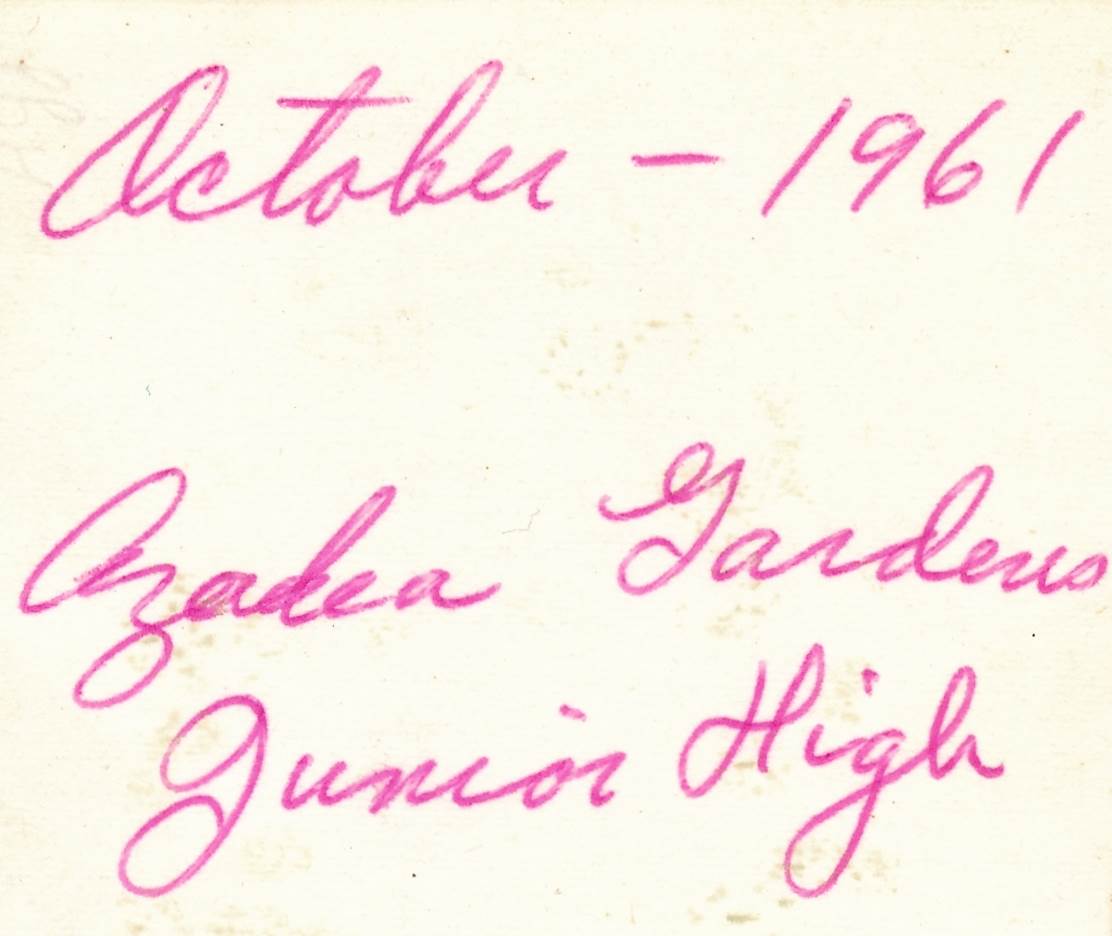 October - 1961
Azalea Gardens
Junior High